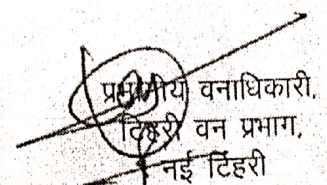 प्रभागीय वनाधिकारी,
टिहरी वन प्रभाग,
नई टिहरी